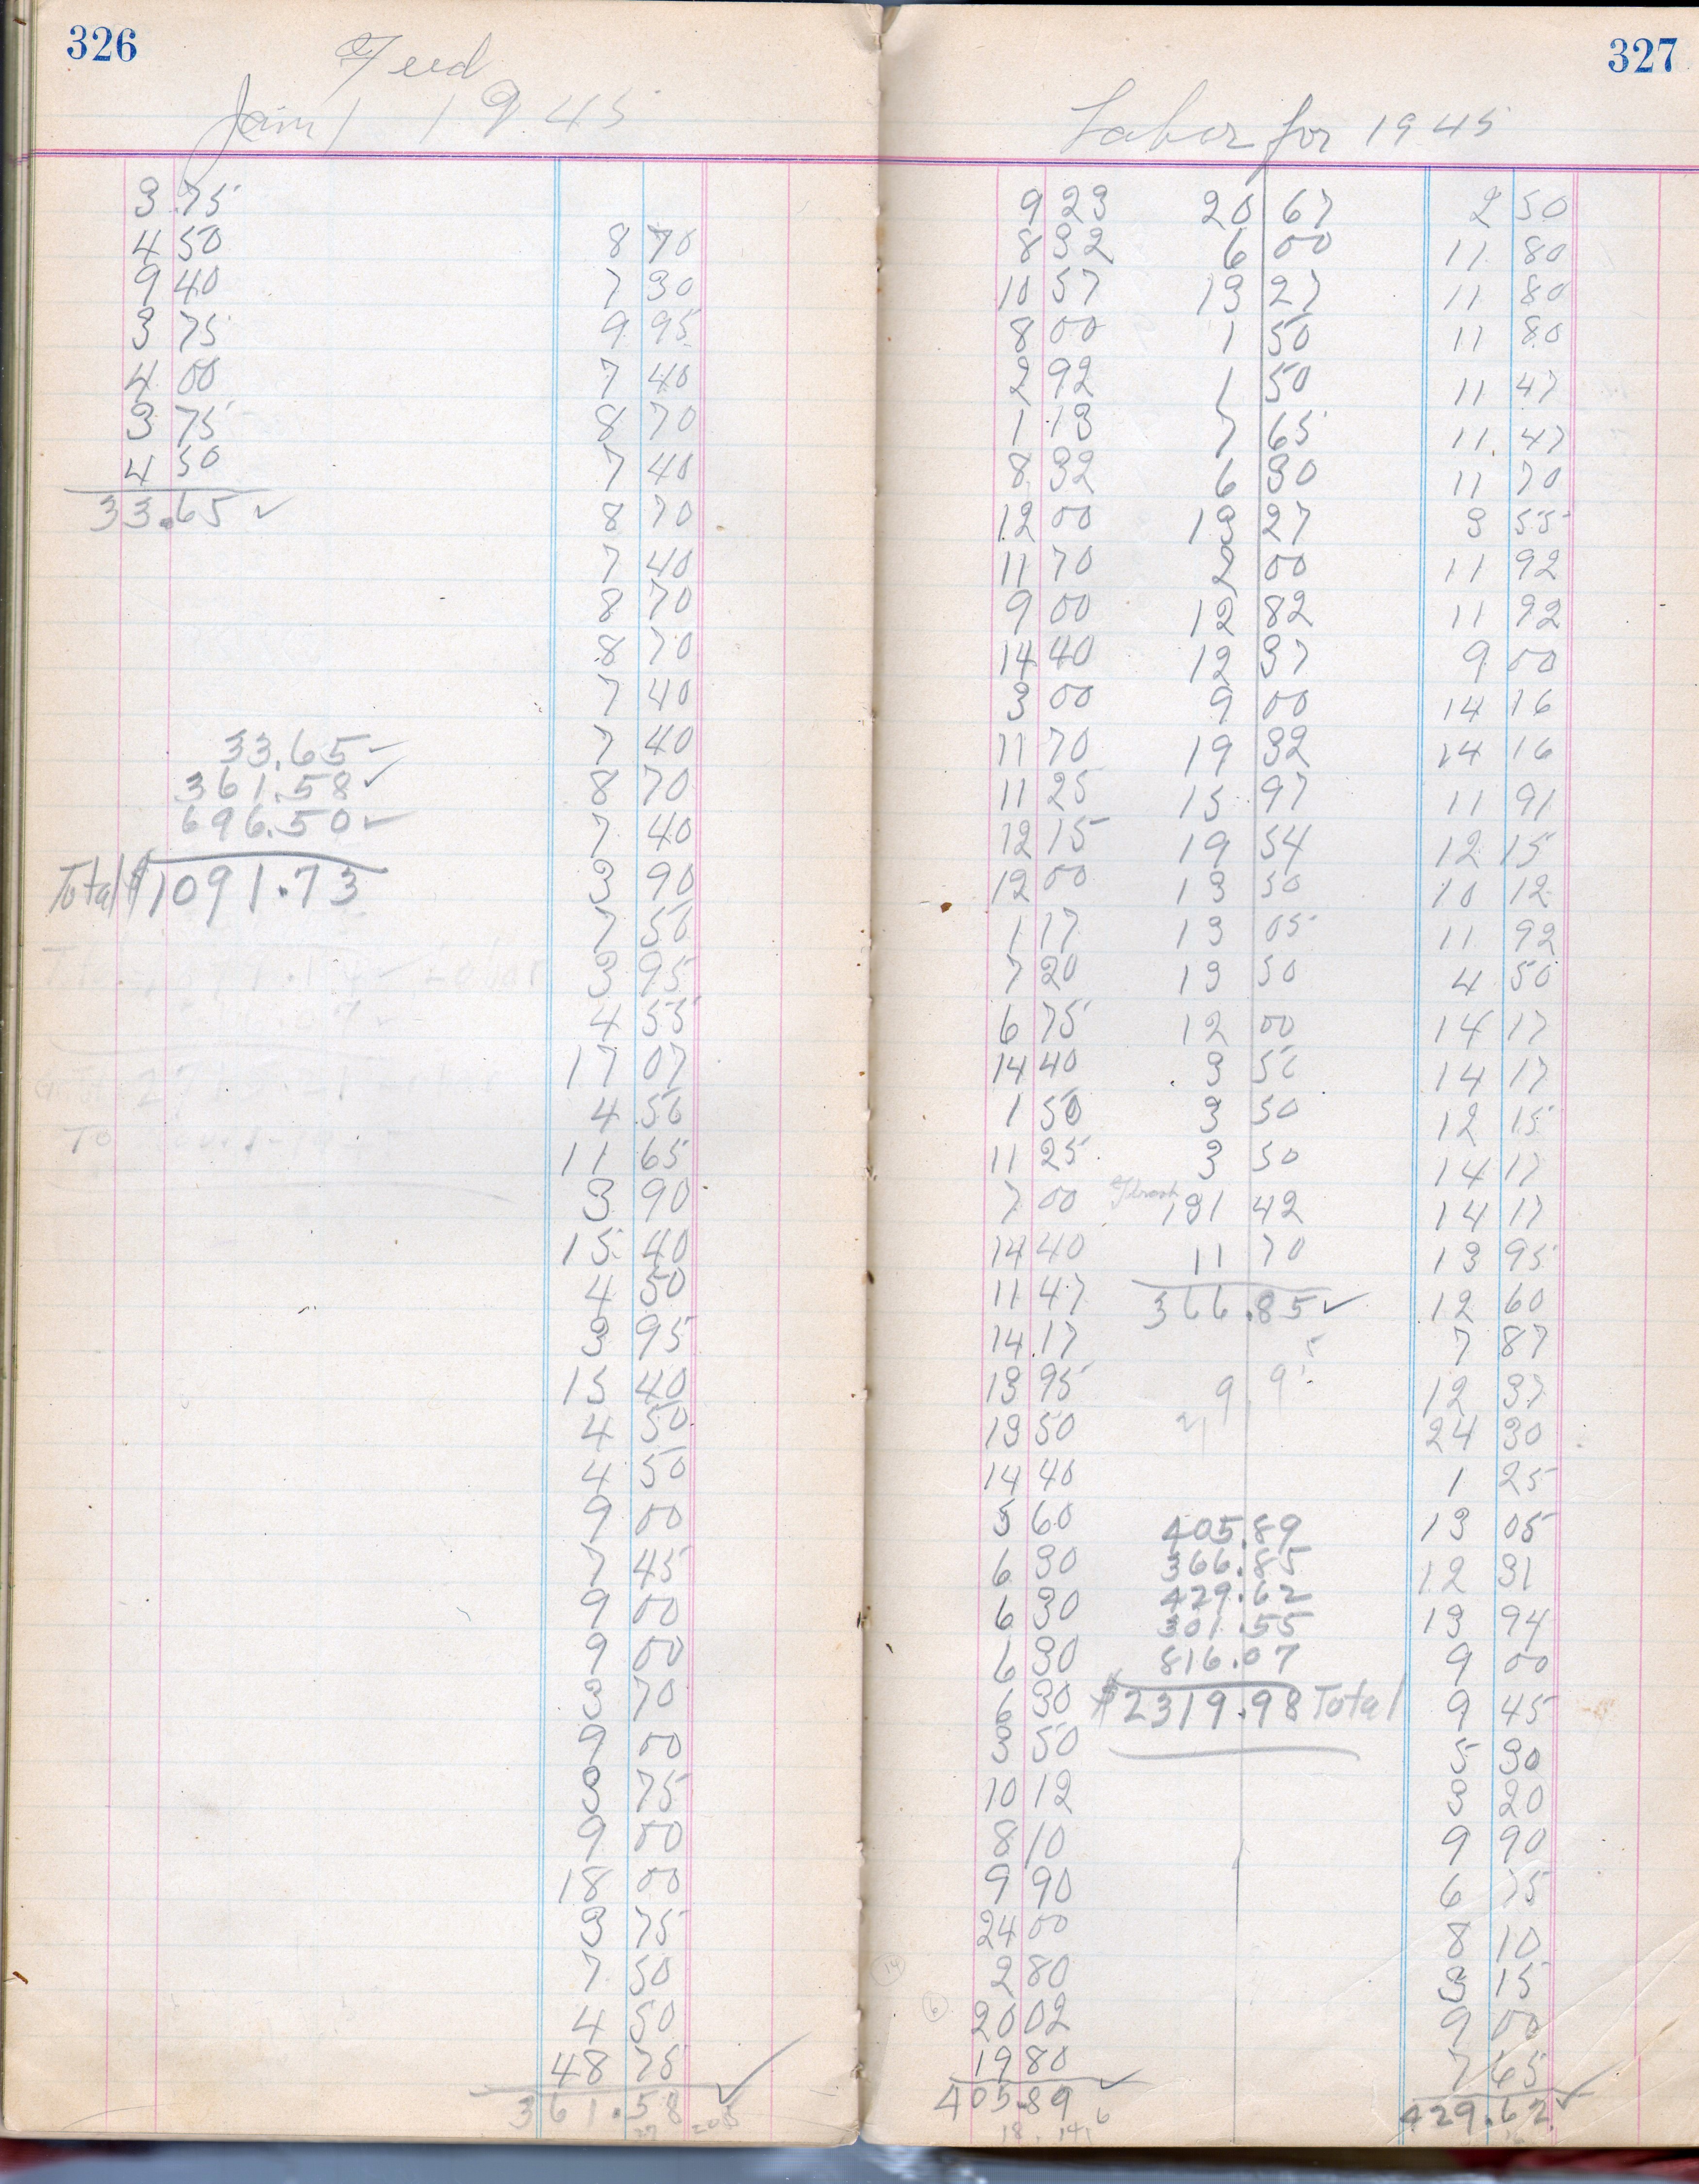 326
Feed
Jan 1 1945
3 75
4 50
9 40
3 75
4 00
3 75
4 50
33.65 ✓
33.65 ✓
361.58 ✓
696.50 ✓
Total $1091.73
8 70
7 30
9 95
7 40
8 70
7 40
8 70
7 40
8 70
8 70
7 40
7 40
8 70
7 40
3 90
7 50
3 95
4 55
17 07
4 50
11 65
3 90
15 40
4 50
3 95
15 40
4 50
4 50
9 00
7 45
9 00
9 00
3 70
9 00
3 75
9 00
18 00
3 75
7 50
4 50
48 75
361.58 ✓
327
Labor for 1945
9 23
8 32
10 57
8 00
2 92
1 13
8 32
12 00
11 70
9 00
14 40
3 00
11 70
11 25
12 15
12 00
1 17
7 20
6 75
14 40
1 50
11 25
7 00
14 40
11 47
14 17
13 95
13 50
14 40
5 60
6 30
6 30
6 30
6 30
3 50
10 12
8 10
9 90
24 00
2 80
20 02
19 80
405.89 ✓
20 67
6 00
13 27
1 50
1 50
7 65
6 30
13 27
2 00
12 82
12 37
9 00
19 32
15 97
19 54
13 50
13 05
13 50
12 00
3 50
3 50
3 50
131 42
11 70
366.85 ✓
405.89
366.85
429.62
301.55
816.07
$2319.98 Total
2 50
11 80
11 80
11 80
11 47
11 47
11 70
3 55
11 92
11 92
9 00
14 16
14 16
11 91
12 15
10 12
11 92
4 50
14 17
14 17
12 15
14 17
14 17
13 95
12 60
7 87
12 37
24 30
1 25
13 05
12 31
13 94
9 00
9 45
5 30
3 20
9 90
6 75
8 10
3 15
9 00
7 65
429.62 ✓